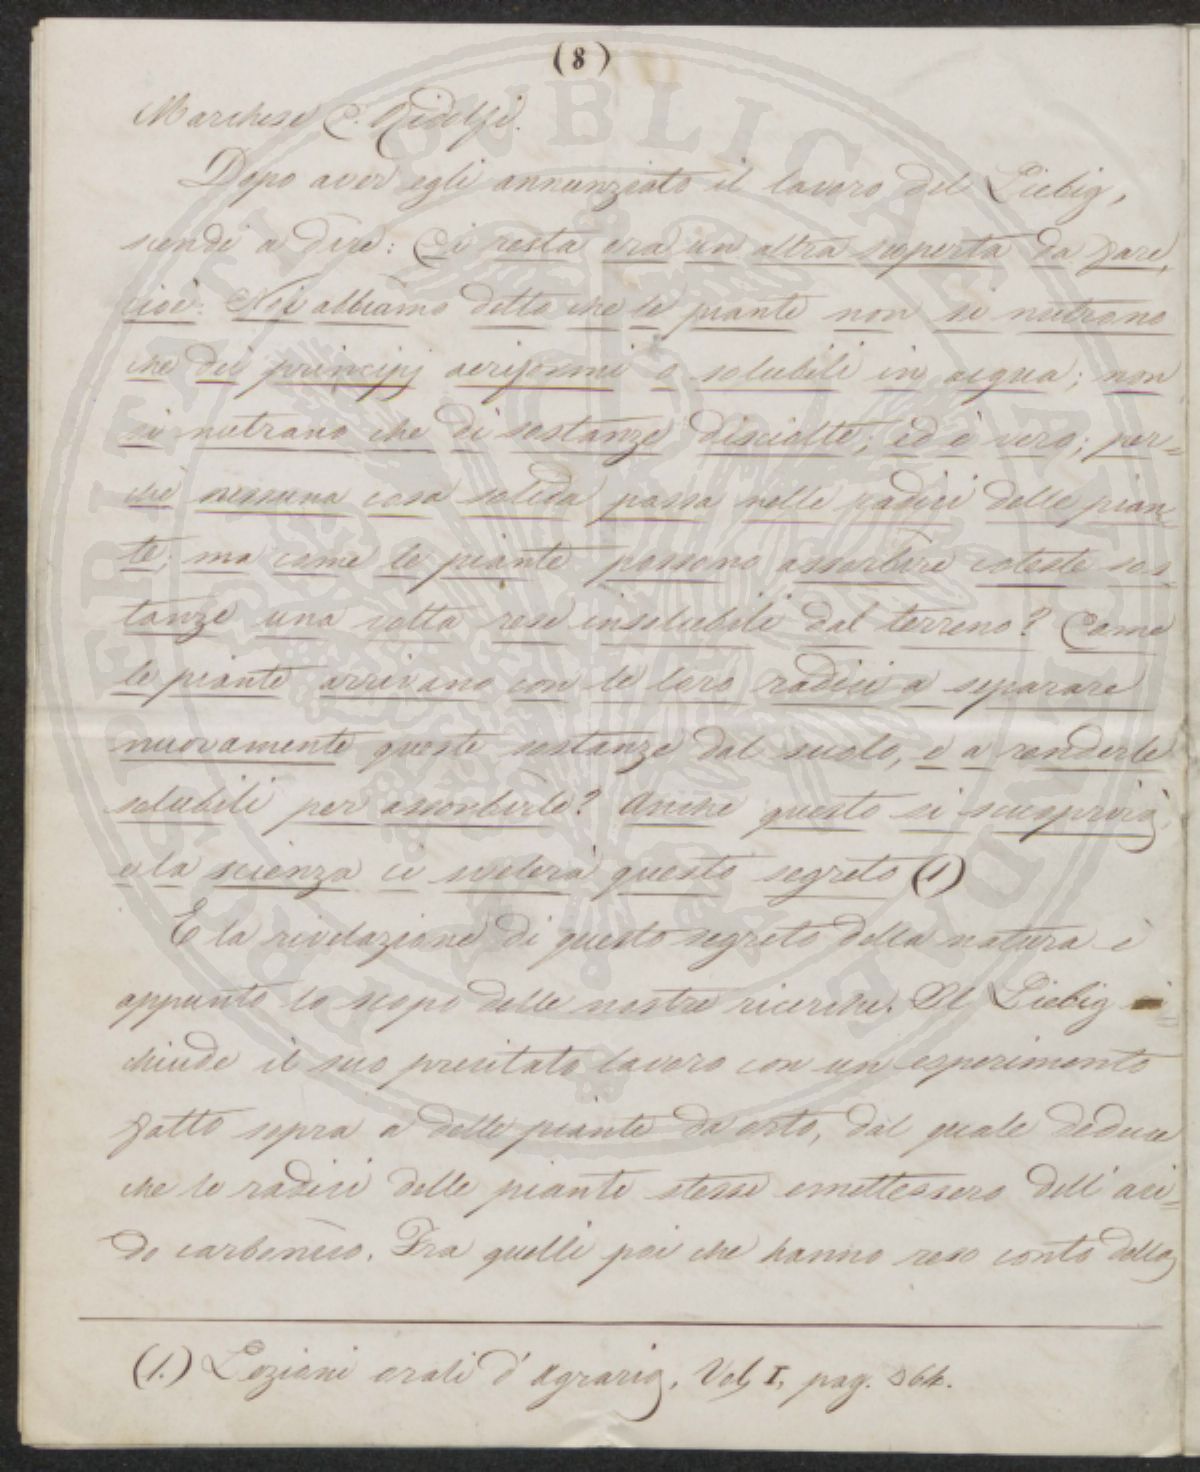 (8)
Marchese C. Ridolfi.
Dopo aver egli annunziato il lavoro del Liebig,
scende a dire: Ci resta ora un altra scoperta da fare,
cioè: Noi abbiamo detto che le piante non si nutrono
che dei principj aeriformi o solubili in acqua; non
si nutrono che di sostanze disciolte; ed è vero; per=
chè nessuna cosa solida passa nelle radici delle pian=
te; ma come le piante possono assorbire coteste sos=
tanze una volta rese insolubili dal terreno? Come
le piante arrivano con le loro radici a separare
nuovamente queste sostanze dal suolo, e a renderle
solubili per assorbirle? Anche questo si scuoprirà,
e la scienza ci svelerà questo segreto (1)
E la rivelazione di questo segreto della natura è
appunto lo scopo delle nostre ricerche. Il Liebig
chiude il suo precitato lavoro con un esperimento
fatto sopra a delle piante da orto, dal quale deduce
che le radici delle piante stesse emettessero dell'aci=
do carbonico. Fra quelli poi che hanno reso conto della
(1.) Lezioni orali d'Agraria, Vol. I, pag. 364.